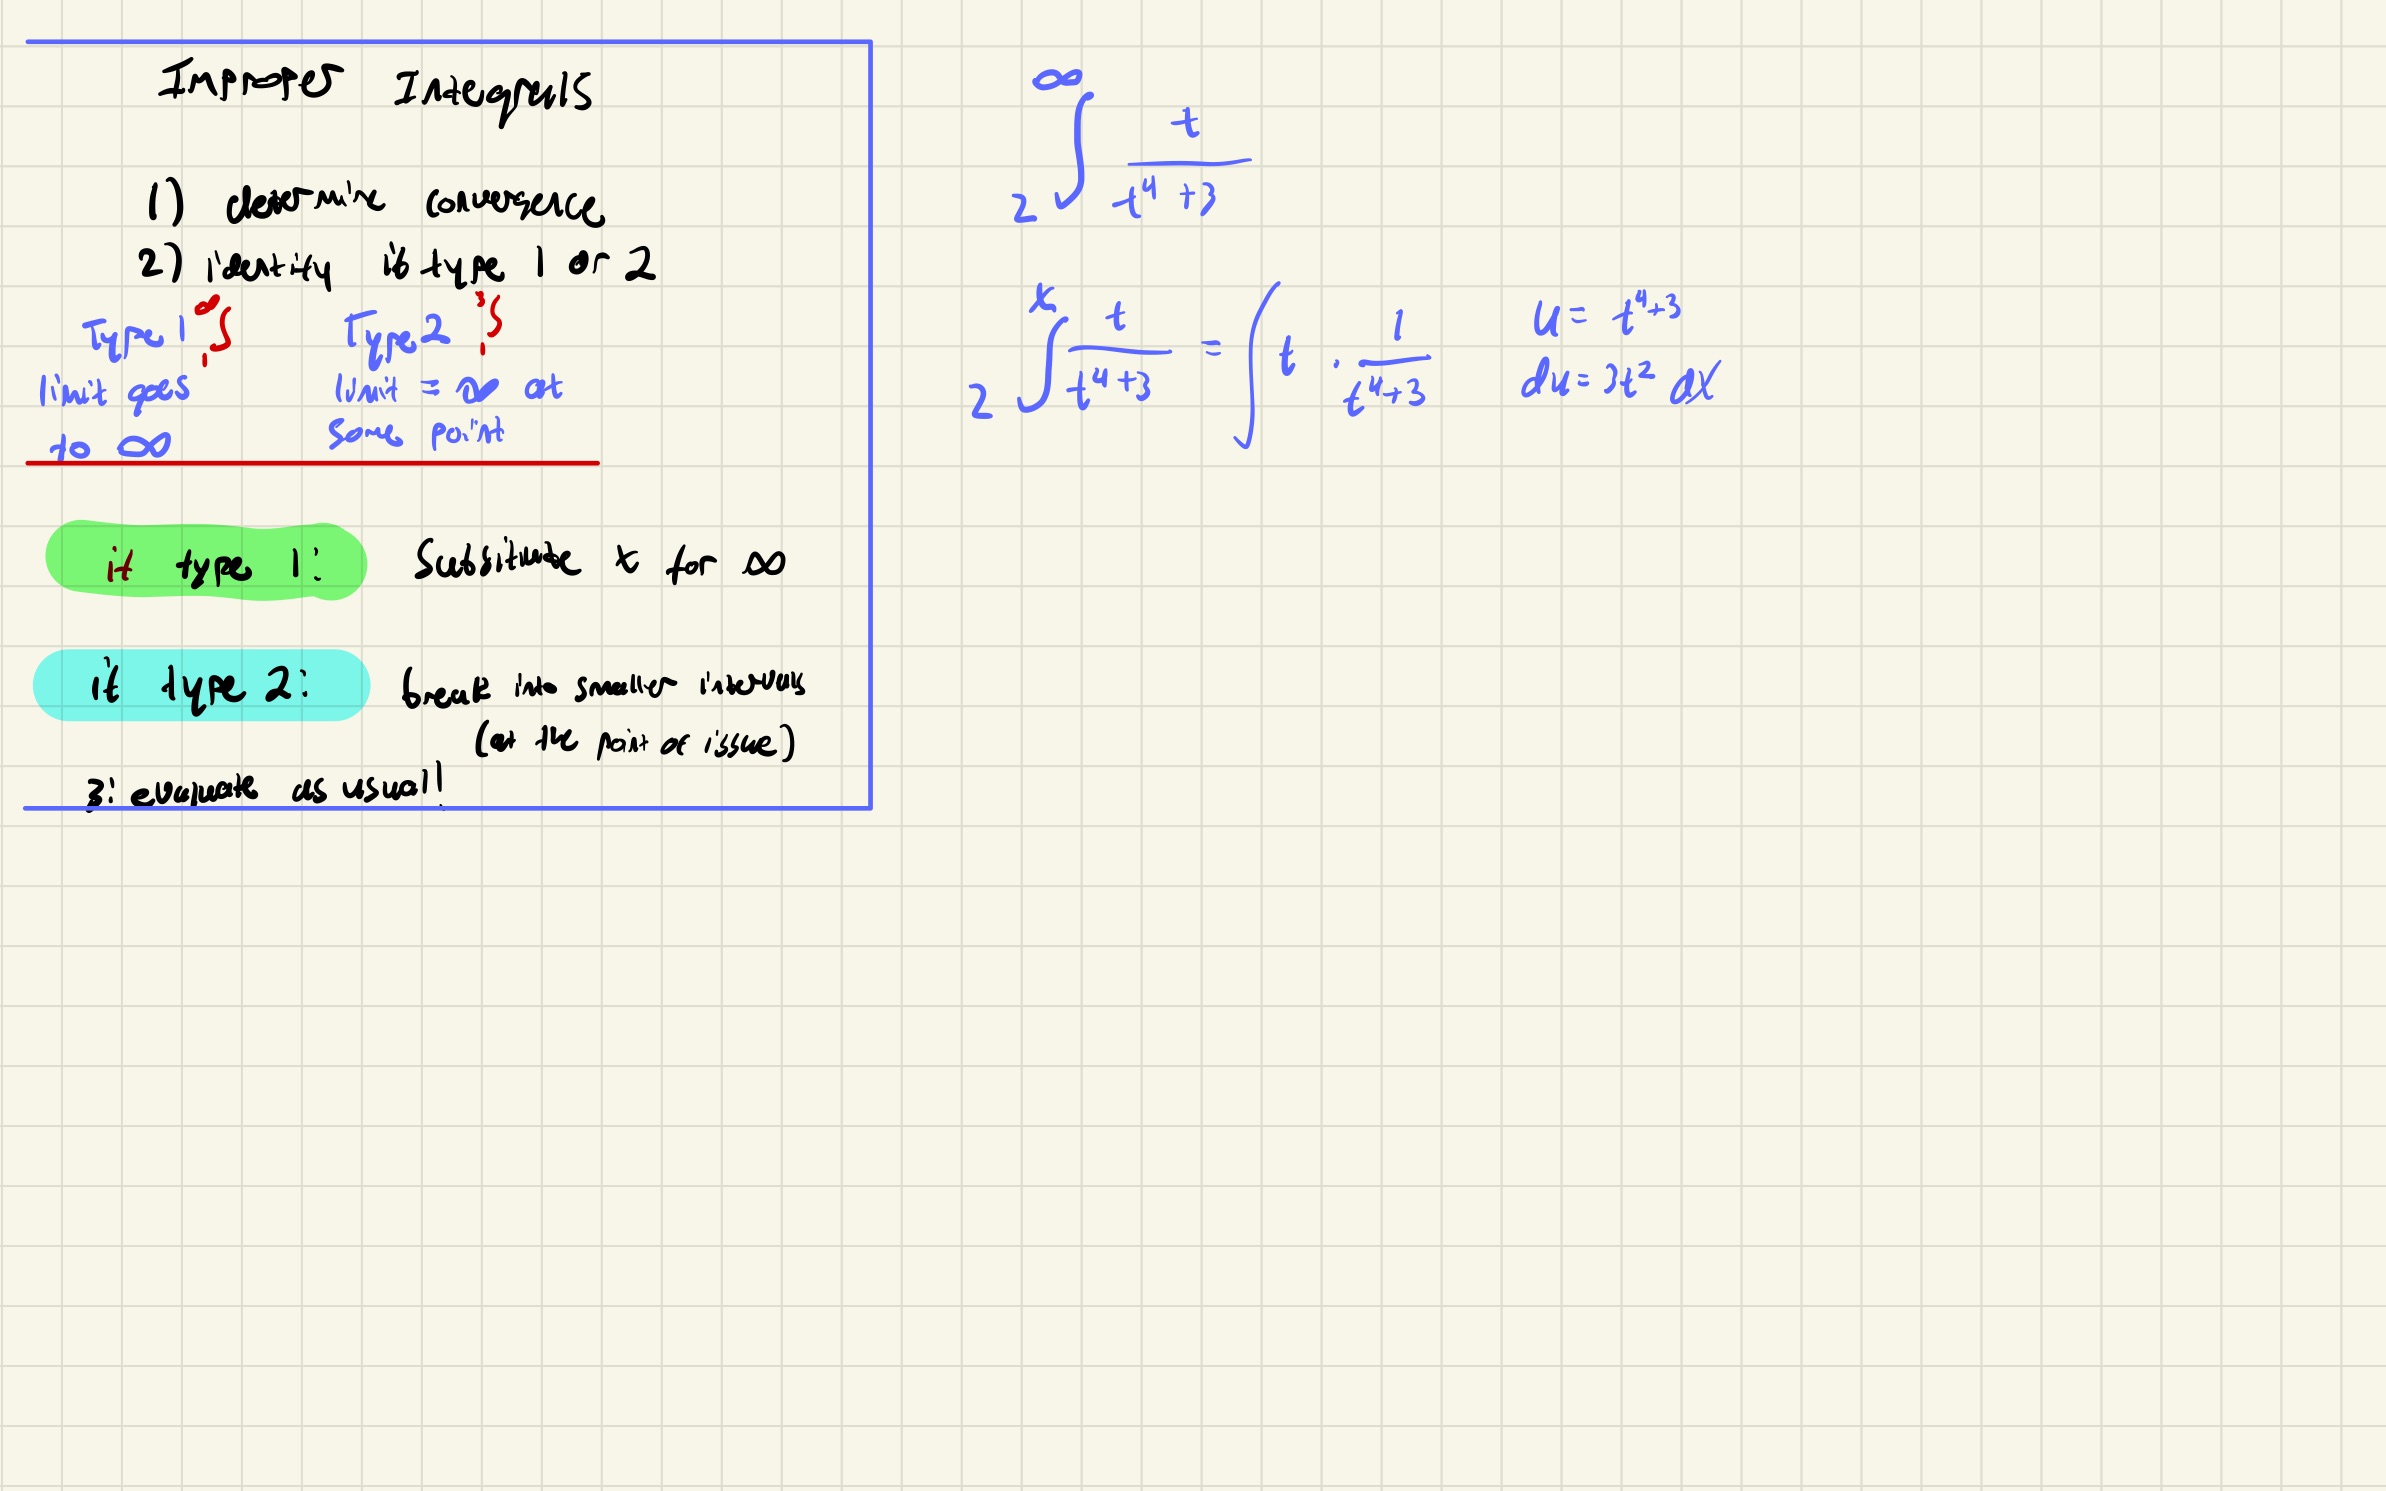 Improper Integrals
1) determine convergence
2) identify if type 1 or 2
Type 1 ∞∫1
limit goes
to ∞
Type 2 3∫1
limit = ∞ at
some point
if type 1: Subsitute x for ∞
if type 2: break into smaller intervals
(at the point of issue)
3: evaluate as usual!
∞
∫ t / t⁴ + 3
2
x
∫ t / t⁴+3 = ∫ t · 1 / t⁴+3
2
u = t⁴+3
du = 3t² dx